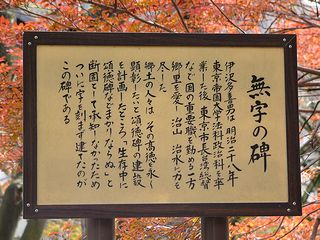 無字の碑
伊沢多喜男は 明治二十八年
東京帝国大学法科政治科を卒
業した後 東京市長 台湾総督
など国の重要職を勤める一方
郷里を愛し 治山 治水に力を
尽した
郷土の人々は その高徳を永く
顕彰したいと頌徳碑の建設
を計画したところ「生存中に
頌徳碑などまかりならぬ」と
断固として承知しなかったため
ついに字を刻まず建てたのが
この碑である